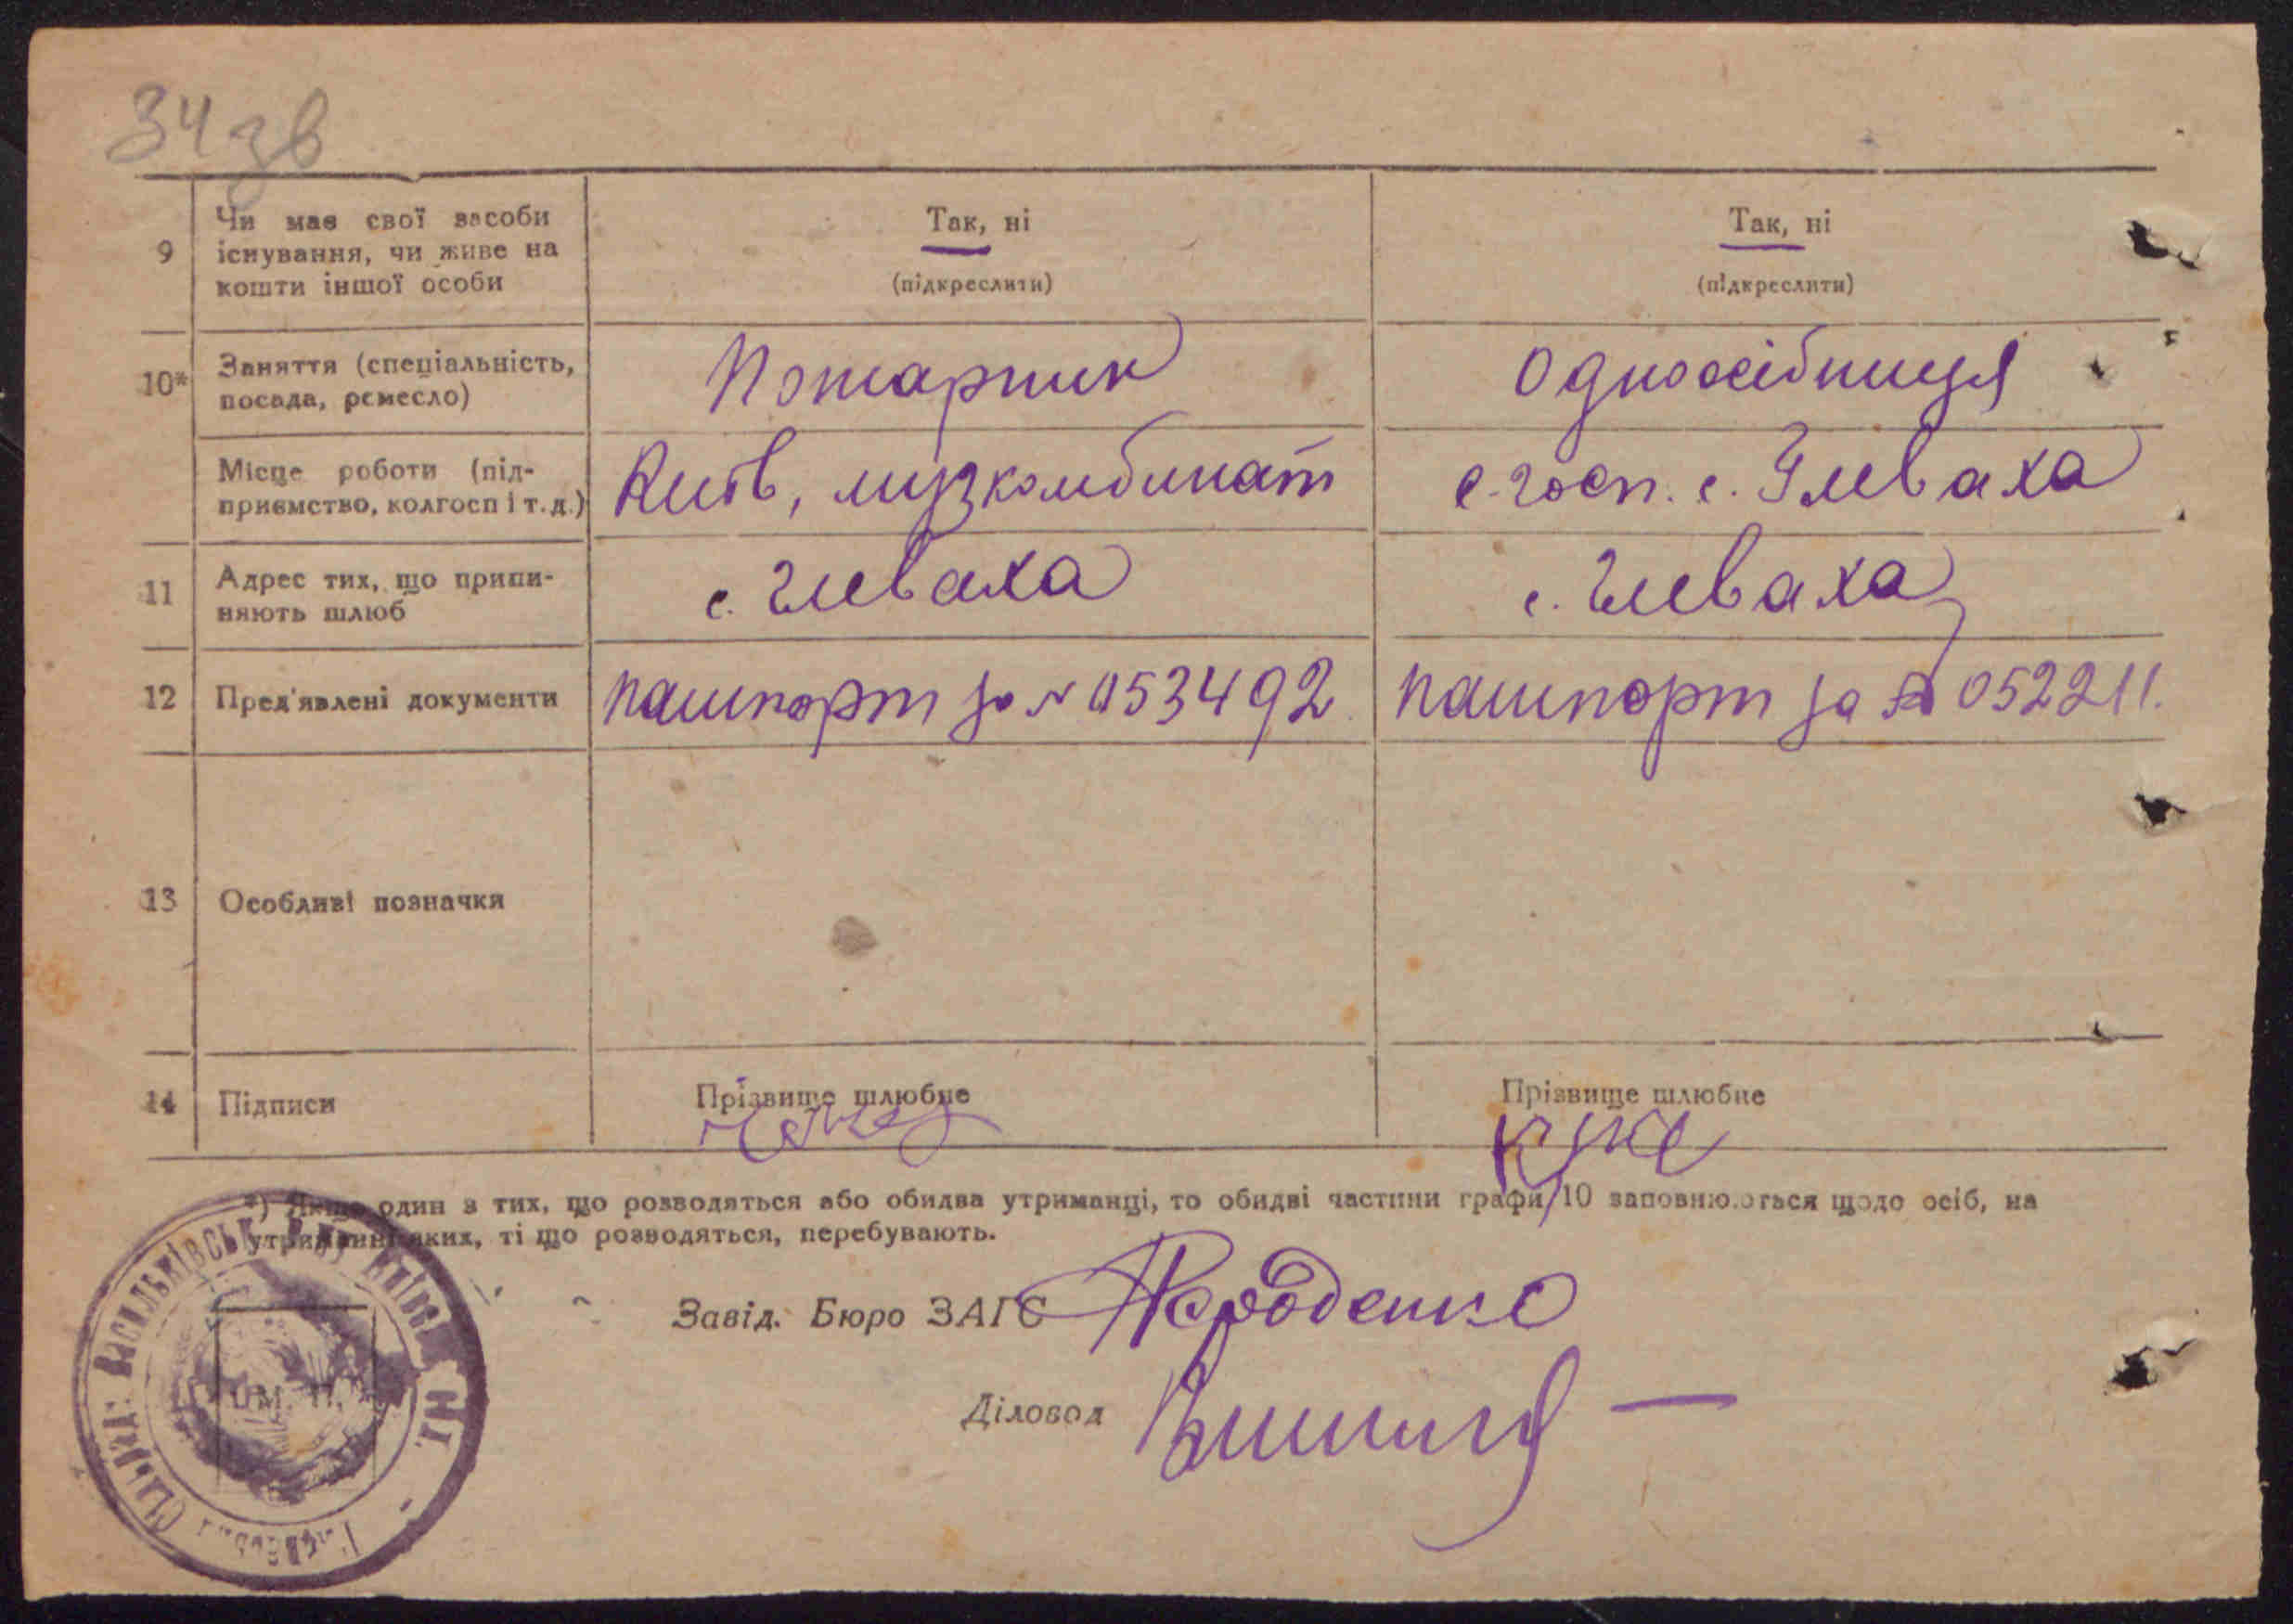 34 зв
9 Чи має свої засоби існування, чи живе на кошти іншої особи
Так, ні
(підкреслити)
Так, ні
(підкреслити)
10* Заняття (спеціальність, посада, ремесло)
Пожарник
Одноосібниця
Місце роботи (підприємство, колгосп і т. д.)
Київ,
с. госп. с. Глеваха
11 Адрес тих, що припиняють шлюб
с. Глеваха
с. Глеваха
12 Пред'явлені документи
пашпорт за № 053492
пашпорт за № 052211.
13 Особливі позначки
14 Підписи
Прізвище шлюбне
Прізвище шлюбне
*) Якщо один з тих, що розводяться або обидва утриманці, то обидві частини графи 10 заповнюються щодо осіб, на
утриманні яких, ті що розводяться, перебувають.
Завід. Бюро ЗАГС
Діловод
М. П.